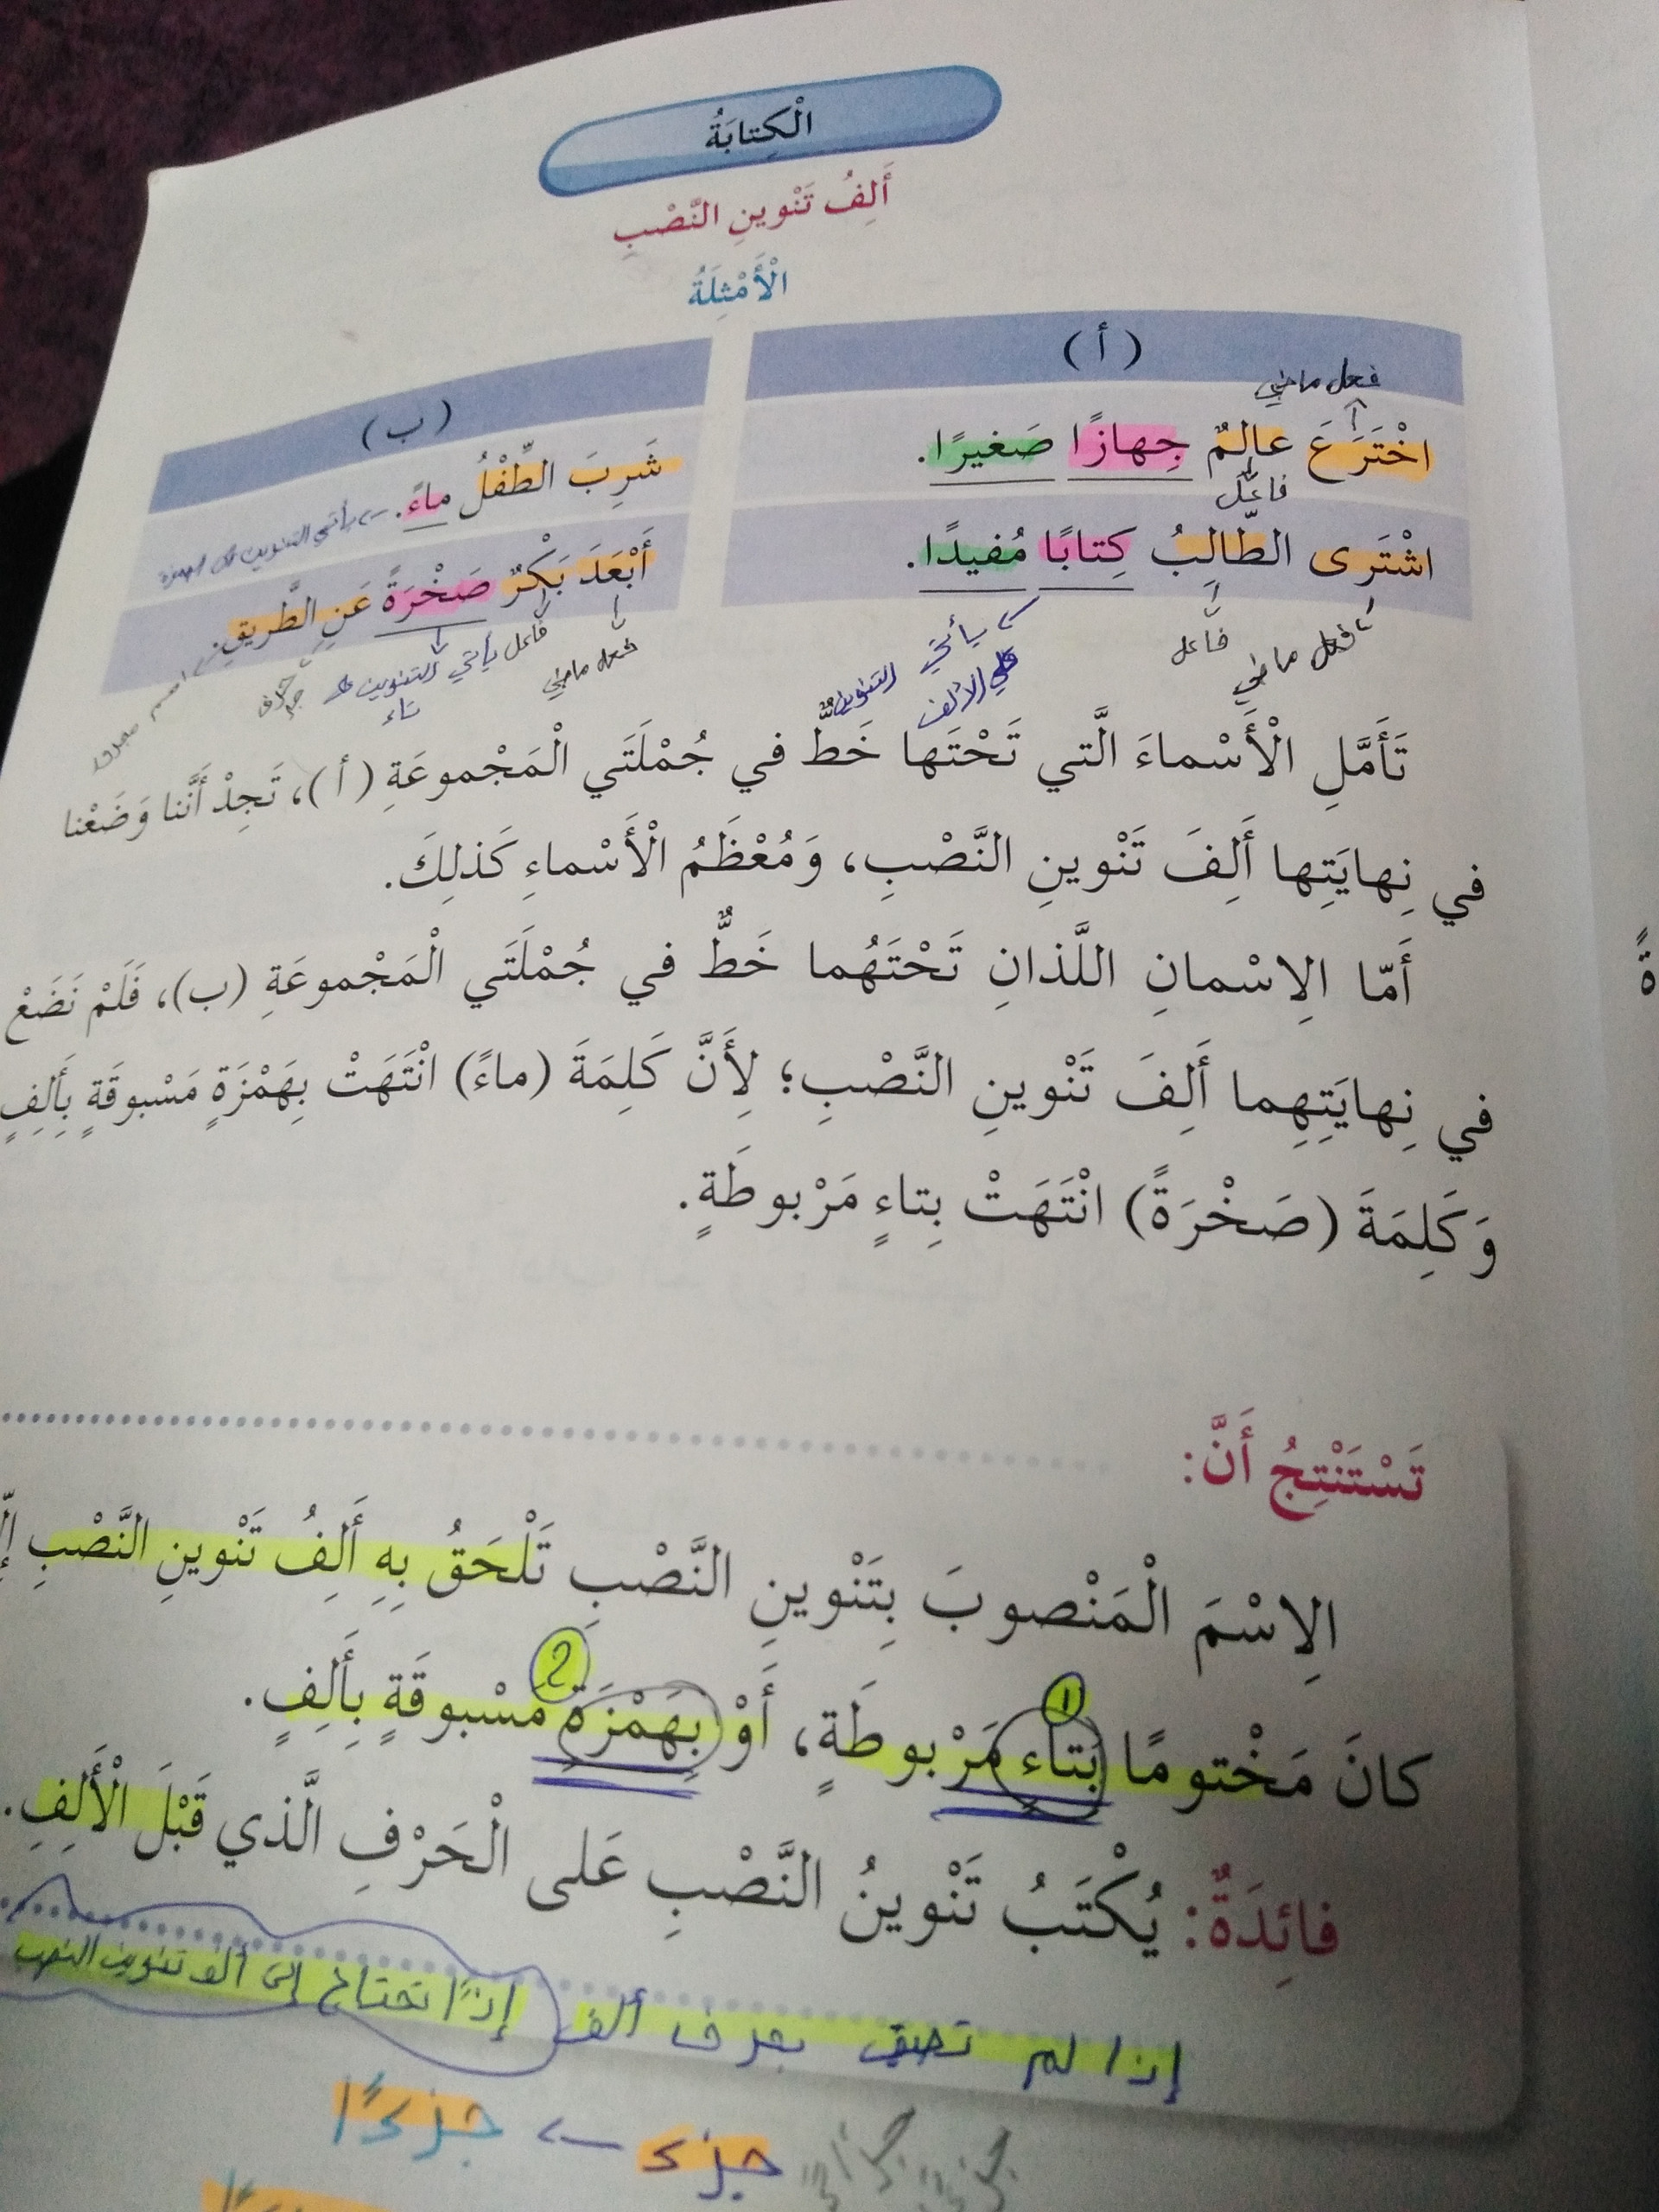 الْكِتابَةُ
أَلِفُ تَنْوينِ النَّصْبِ
الْأَمْثِلَةُ
( أ )
فعل ماضي
اخْتَرَعَ عالِمٌ جِهازًا صَغيرًا.
فاعل
اشْتَرى الطّالِبُ كِتابًا مُفيدًا.
فعل ماضي فاعل يأتي التنوين
على الألف
( ب )
شَرِبَ الطِّفْلُ ماءً.
يأتي التنوين على الهمزة
أَبْعَدَ بَكْرٌ صَخْرَةً عَنِ الطَّريقِ.
فعل ماضي فاعل يأتي التنوين على
تاء
حرف جر
اسم مجرور
تَأَمَّلِ الْأَسْماءَ الَّتي تَحْتَها خَطٌّ في جُمْلَتَي الْمَجْموعَةِ ( أ )، تَجِدْ أَنَّنا وَضَعْنا
في نِهايَتِها أَلِفَ تَنْوينِ النَّصْبِ، وَمُعْظَمُ الْأَسْماءِ كَذلِكَ.
أَمّا الِاسْمانِ اللَّذانِ تَحْتَهُما خَطٌّ في جُمْلَتَي الْمَجْموعَةِ (ب)، فَلَمْ نَضَعْ
في نِهايَتِهِما أَلِفَ تَنْوينِ النَّصْبِ؛ لِأَنَّ كَلِمَةَ (ماءً) انْتَهَتْ بِهَمْزَةٍ مَسْبوقَةٍ بِأَلِفٍ
وَكَلِمَةَ (صَخْرَةً) انْتَهَتْ بِتاءٍ مَرْبوطَةٍ.
ةً
تَسْتَنْتِجُ أَنَّ:
الِاسْمَ الْمَنْصوبَ بِتَنْوينِ النَّصْبِ تَلْحَقُ بِهِ أَلِفُ تَنْوينِ النَّصْبِ
1 2
كانَ مَخْتومًا بِتاءٍ مَرْبوطَةٍ، أَوْ بِهَمْزَةٍ مَسْبوقَةٍ بِأَلِفٍ.
فائِدَةٌ: يُكْتَبُ تَنْوينُ النَّصْبِ عَلى الْحَرْفِ الَّذي قَبْلَ الْأَلِفِ.
إذا لم تسبق بحرف ألف إذًا تحتاج إلى ألف تنوين النصب
جزء جزءًا